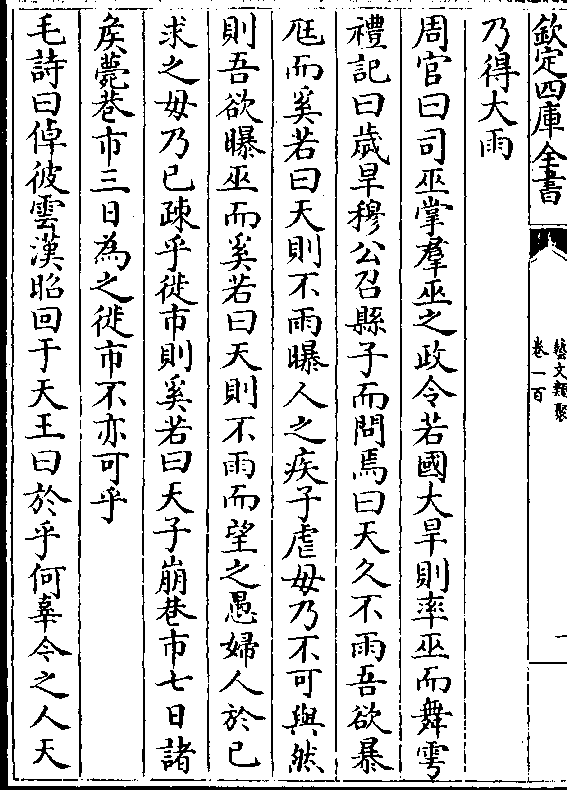 欽定四庫全書
藝文類聚
卷一百
一
乃得大雨
周官曰司巫掌羣巫之政令若國大旱則率巫而舞雩
禮記曰歲旱穆公召縣子而問焉曰天久不雨吾欲暴
尫而奚若曰天則不雨曝人之疾子虐毋乃不可與然
則吾欲曝巫而奚若曰天則不雨而望之愚婦人於已
求之毋乃已疎乎徙市則奚若曰天子崩巷市七日諸
矦薨巷市三日為之徙市不亦可乎
毛詩曰倬彼雲漢昭回于天王曰於乎何辜今之人天